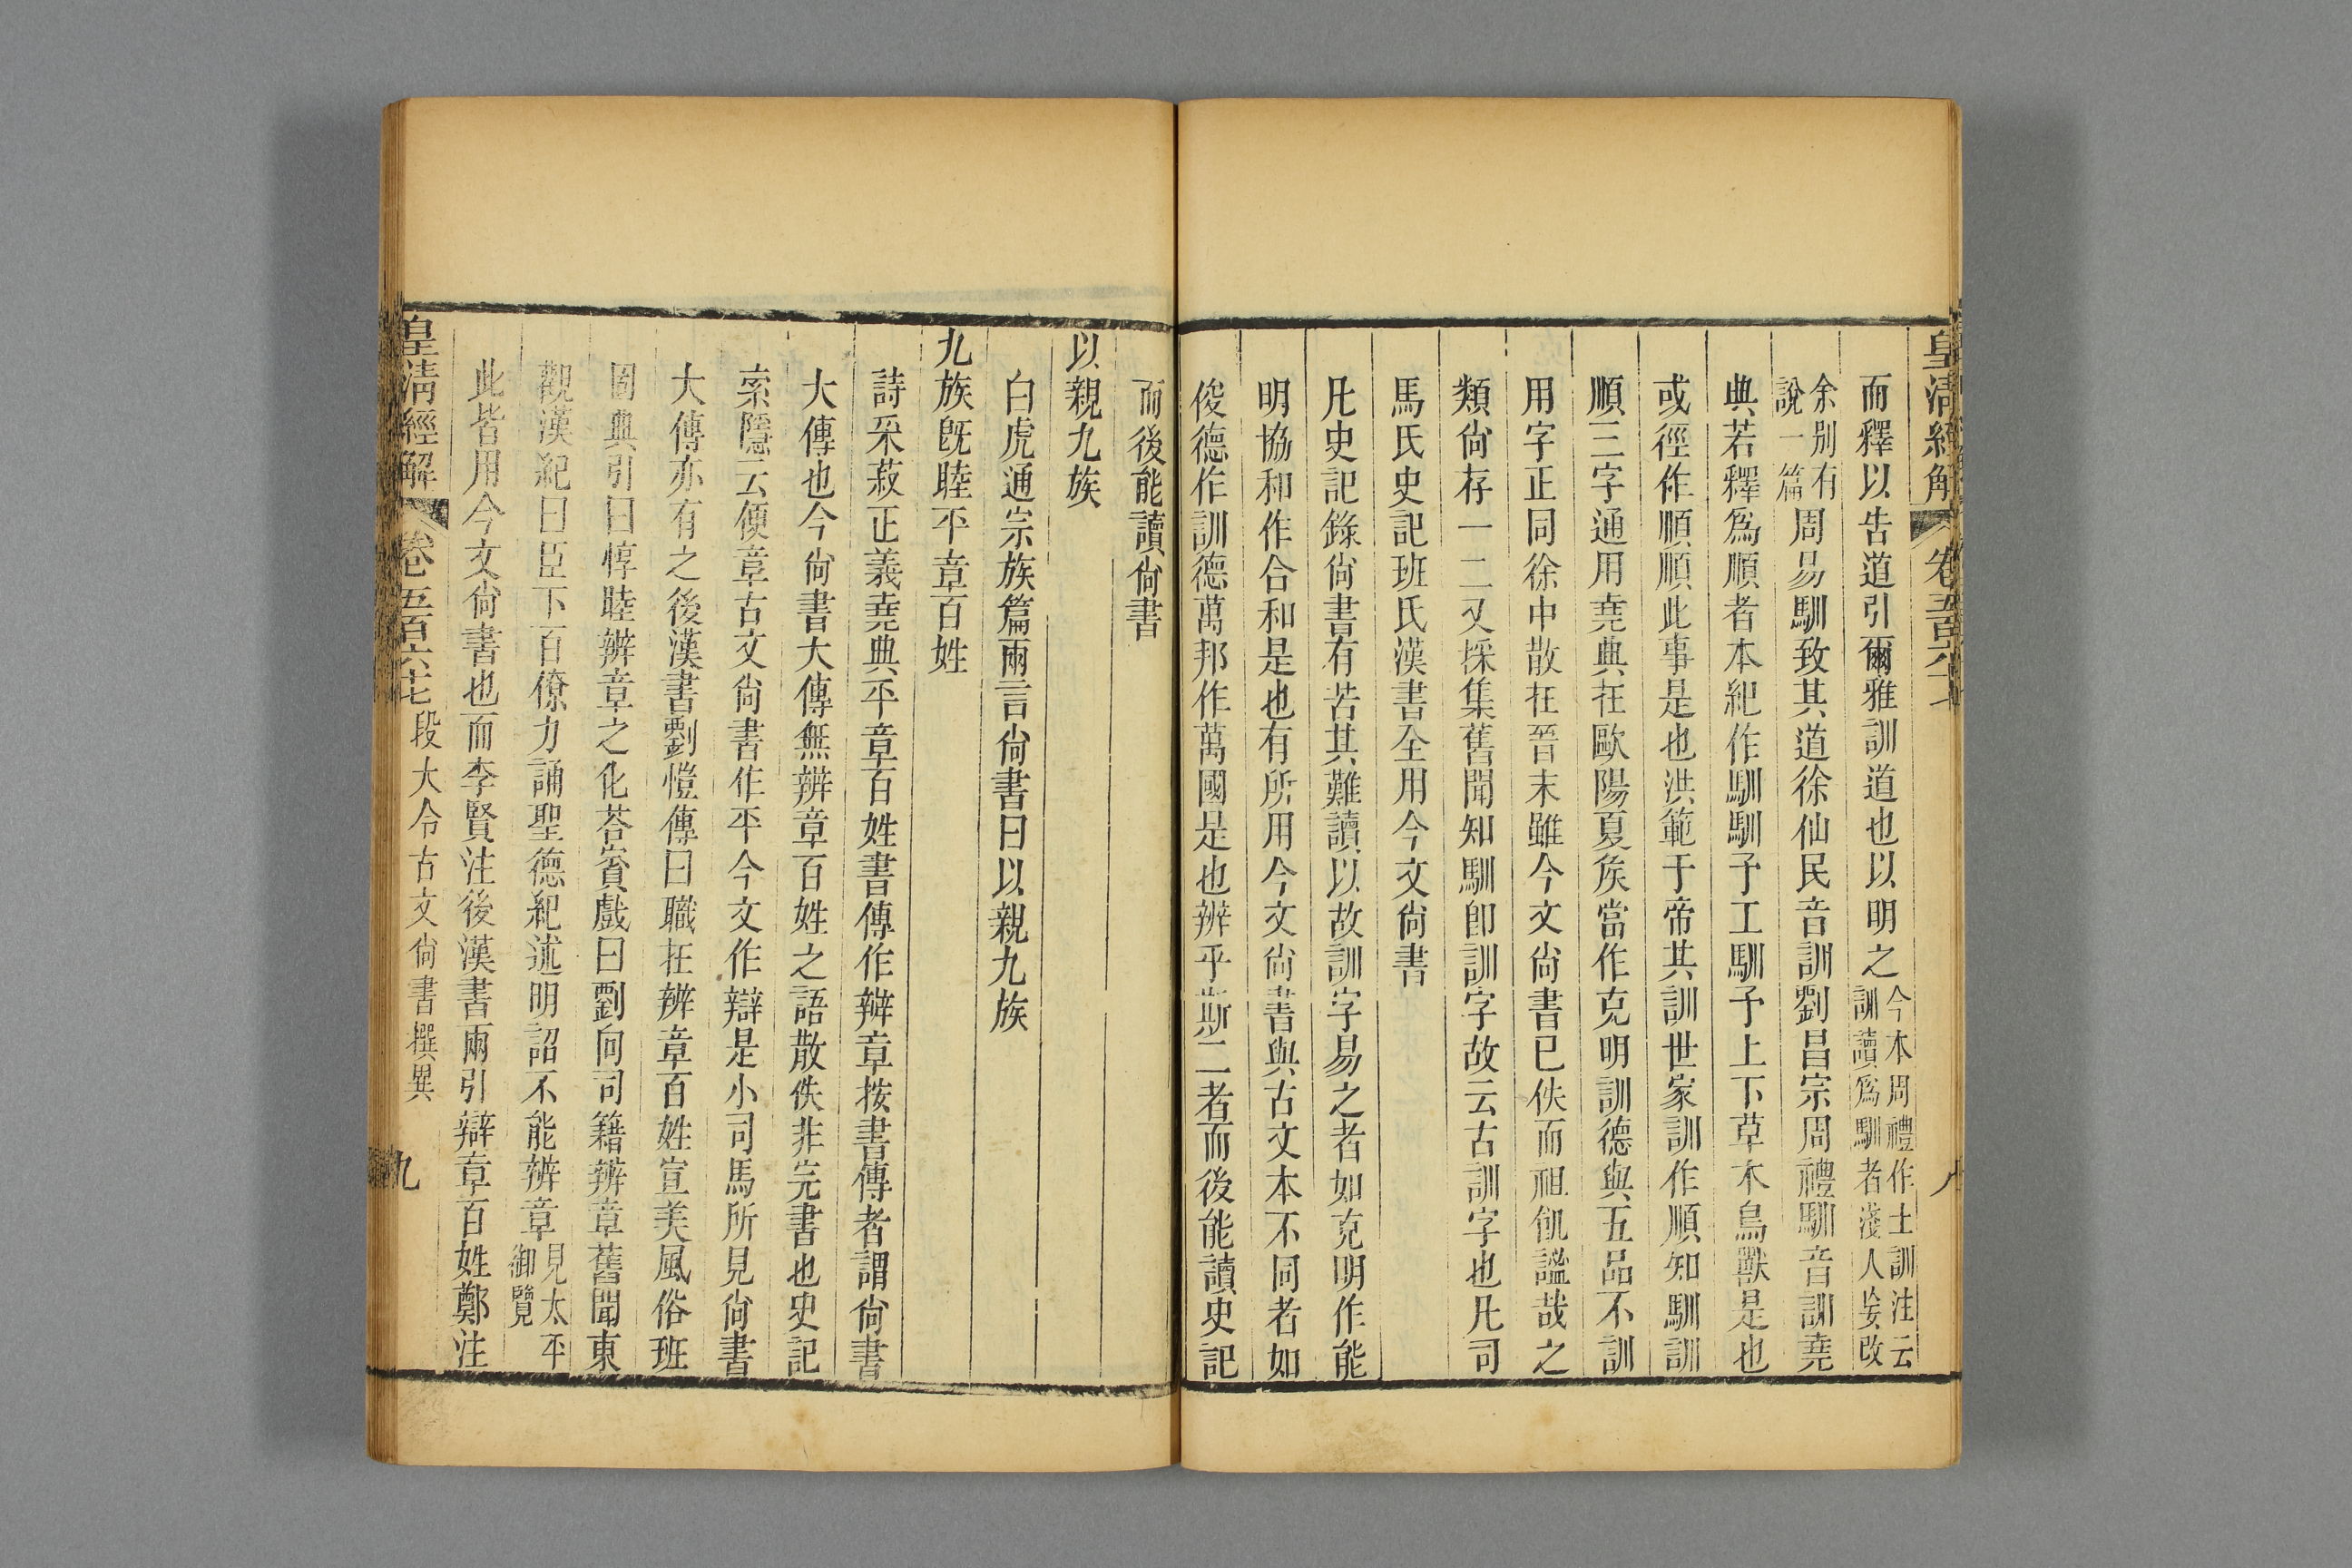 皇清經解 卷五百六十七 八
而釋以告道引爾雅訓道也以明之今本周禮作土訓注云訓讀爲馴者淺人妄改
余別有說一篇周易馴致其道徐仙民音訓劉昌宗周禮馴音訓堯
典若釋爲順者本紀作馴馴予工馴予上下草木鳥獸是也
或徑作順順此事是也洪範于帝其訓世家訓作順知馴訓
順三字通用堯典在歐陽夏矦當作克明訓德與五品不訓
用字正同徐中散在晉末雖今文尙書已佚而祖飢謐哉之
類尙存一二又採集舊聞知馴卽訓字故云古訓字也凡司
馬氏史記班氏漢書全用今文尙書
凡史記錄尙書有苦其難讀以故訓字易之者如克明作能
明協和作合和是也有所用今文尙書與古文本不同者如
俊德作訓德萬邦作萬國是也辨乎斯二者而後能讀史記
而後能讀尙書
以親九族
白虎通宗族篇兩言尙書曰以親九族
九族旣睦平章百姓
詩采菽正義堯典平章百姓書傳作辨章按書傳者謂尙書
大傳也今尙書大傳無辨章百姓之語散佚非完書也史記
索隱云便章古文尙書作平今文作辯是小司馬所見尙書
大傳亦有之後漢書劉愷傳曰職在辨章百姓宣美風俗班
固典引曰惇睦辨章之化荅賓戲曰劉向司籍辨章舊聞東
觀漢紀曰臣下百僚力誦聖德紀述明詔不能辨章見太平御覽
此皆用今文尙書也而李賢注後漢書兩引辯章百姓鄭注
皇清經解 卷五百六十七 段大令古文尙書撰異 九